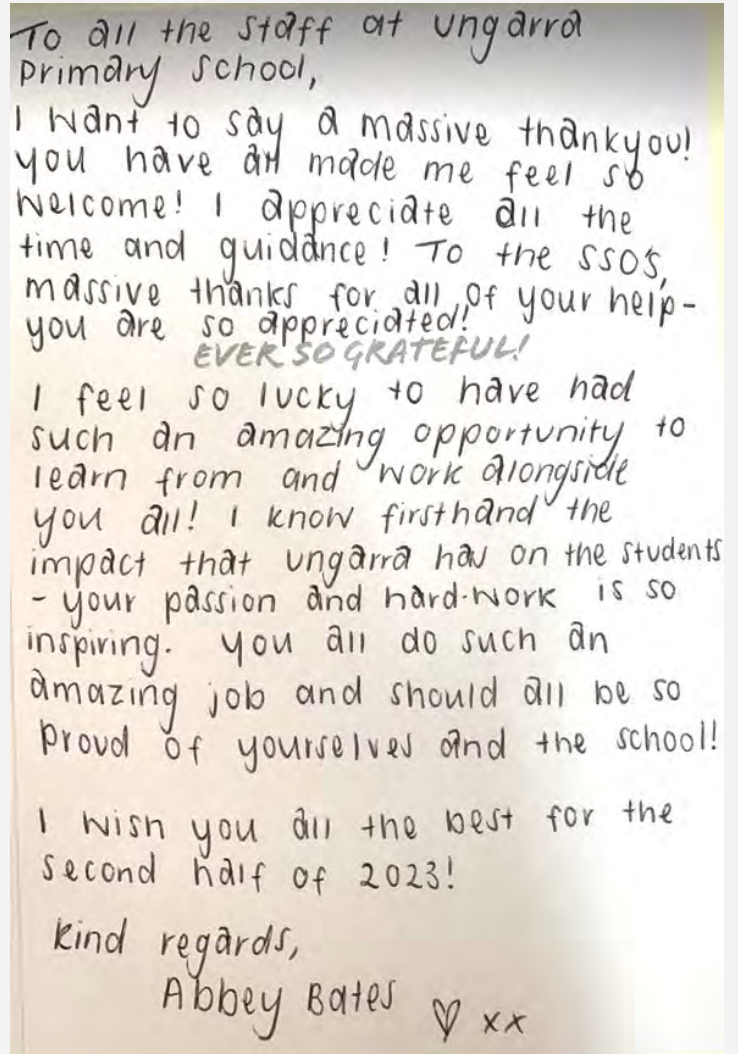 To all the staff at ungarra
primary school,
I want to say a massive thankyou!
you have all made me feel so
welcome! I appreciate all the
time and guidance! To the SSO's,
massive thanks for all of your help-
you are so appreciated!
EVER SO GRATEFUL!
I feel so lucky to have had
such an amazing opportunity to
learn from and work alongside
you all! I know firsthand the
impact that ungarra has on the students
- your passion and hard-work is so
inspiring. you all do such an
amazing job and should all be so
proud of yourselves and the school!
I wish you all the best for the
second half of 2023!
kind regards,
Abbey Bates ♡ xx